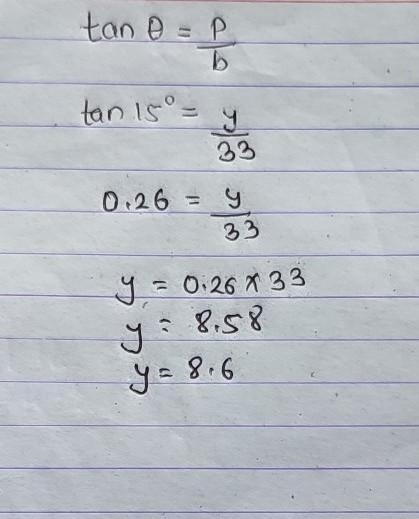 tan θ = p/b
tan 15° = y/33
0.26 = y/33
y = 0.26 x 33
y = 8.58
y = 8.6